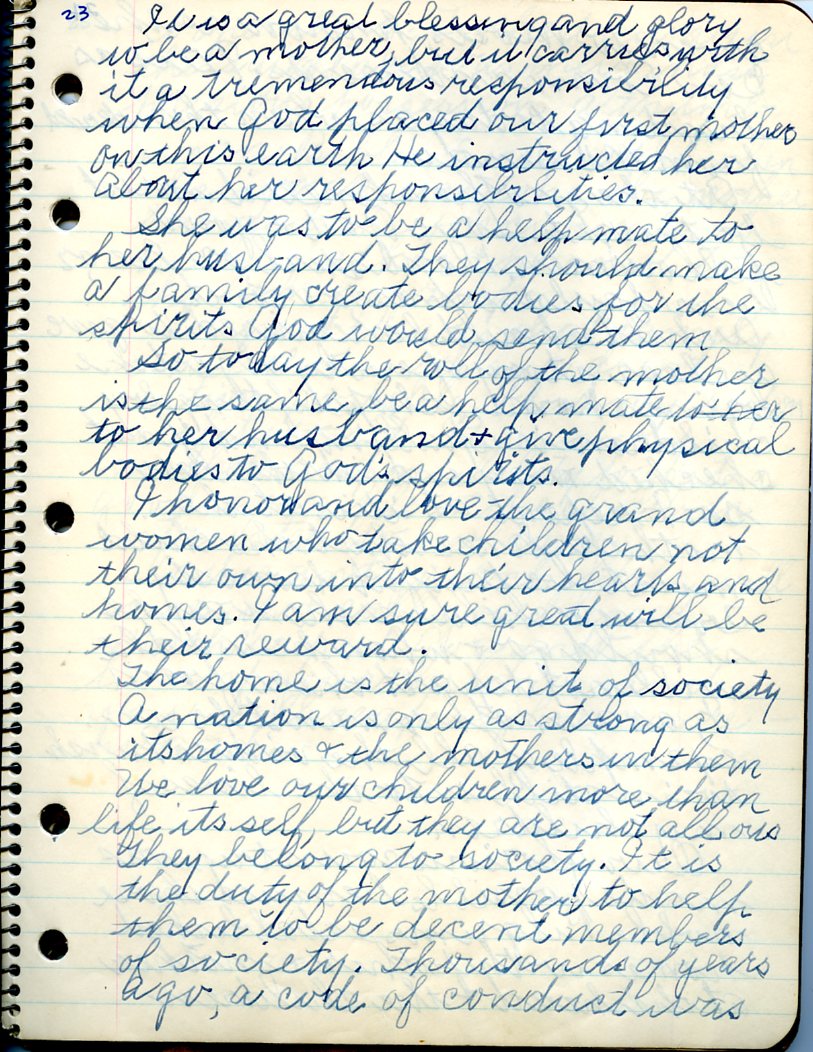 23
It is a great blessing and glory
to be a mother, but it carries with
it a tremendous responsibility
when God placed our first mother
on this earth He instructed her
about her responsibilities.
She was to be a help mate to
her husband. They should make
a family create bodies for the
spirits God would send them
So today the roll of the mother
is the same be a help mate to her
to her husband + give physical
bodies to God's spirits.
I honor and love the grand
women who take children not
their own into their hearts and
homes. I am sure great will be
their reward.
The home is the unit of society
A nation is only as strong as
its homes & the mothers in them
We love our children more than
life its self, but they are not all ours
They belong to society. It is
the duty of the mother to help
them to be decent members
of society. Thousands of years
ago, a code of conduct was